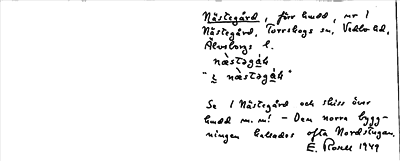 Nästegård, förr hudd, nr 1
Nästegård, Torrskogs sn, Vedbo hd,
Älvsborgs l.
næ̀stəgáɖ
"i næ̀stəgáɖ"
Se 1 Nästegård och skiss över
hudd m. m! – Den norra bygg-
ningen kallades ofta Nordstugan.
E. Rosell 1949